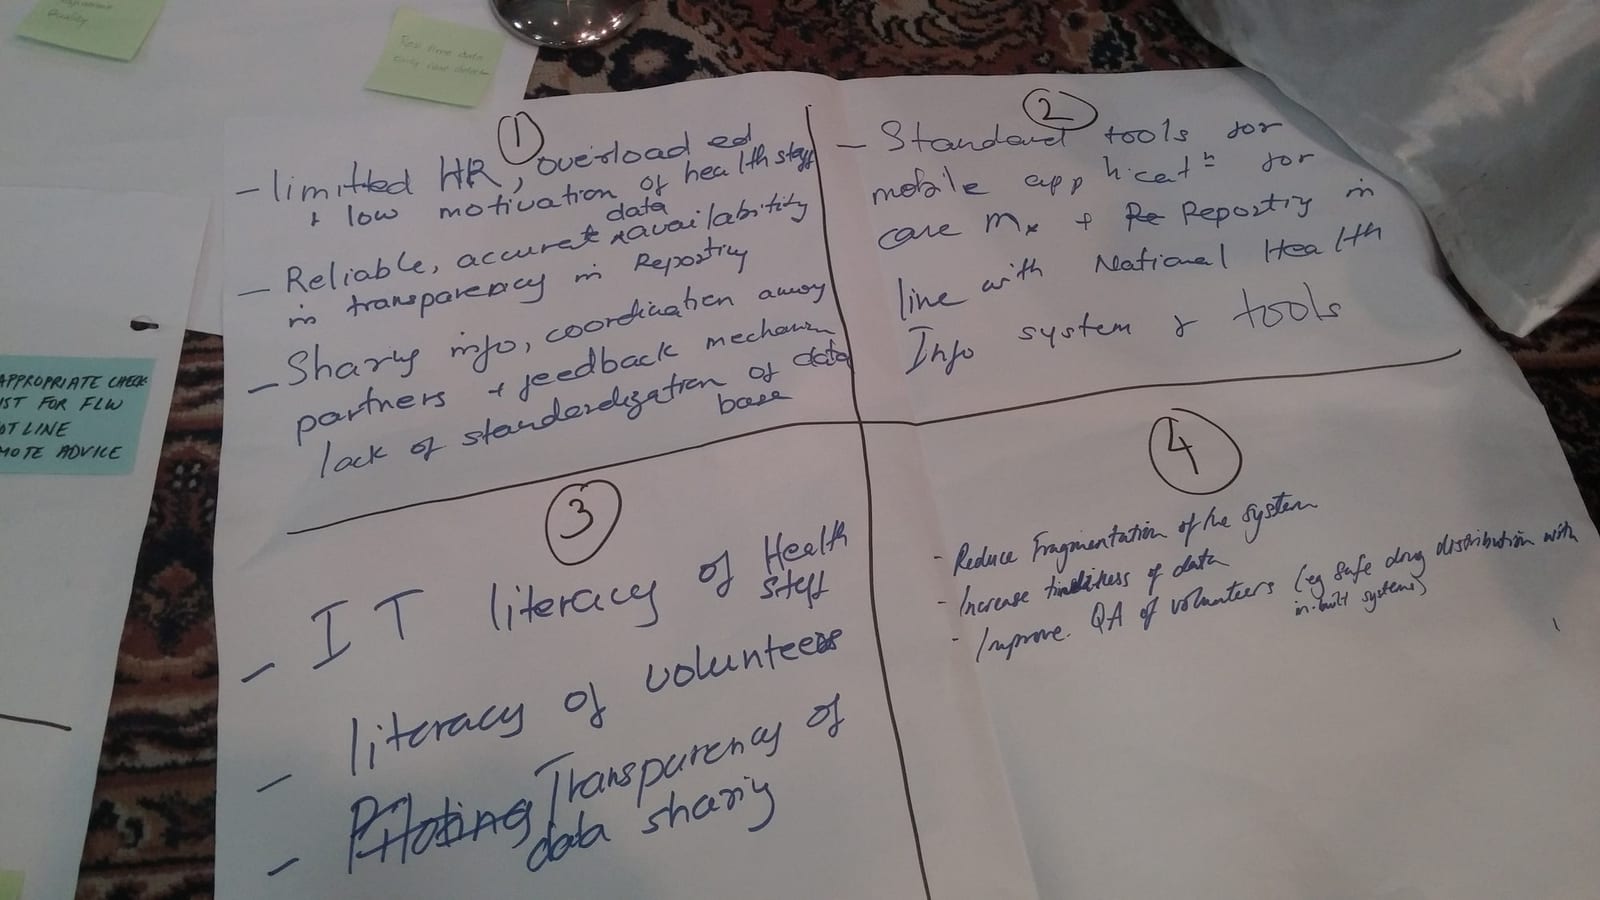 Quality
Real time data
early case detect
1
- limitted HR, overloaded
+ low motivation of health staff
- Reliable, accurate data availability
in transparency in Reporting
- Sharing info, coordination among
partners + feedback mechanism
lack of standardization of data
base
2
- Standard tools for
mobile applicatn for
care Mx + Re Reporting in
line with National Health
Info system & tools
3
- IT literacy of Health
Staff
- literacy of volunteers
- Piloting Transparency of
data sharing
4
- Reduce Fragmentation of the system
- Increase timeliness of data
- Improve QA of volunteers (eg safe drug distribution with
in-built systems)
APPROPRIATE CHECK
IST FOR FLW
OT LINE
MOTE ADVICE